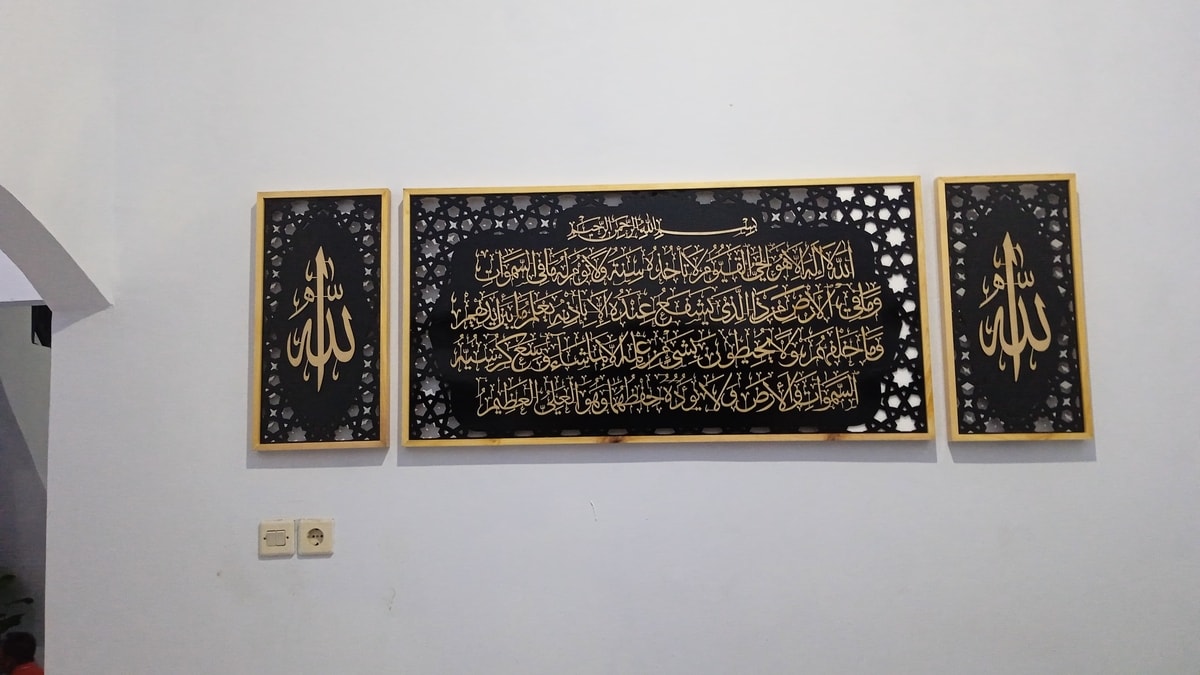 الله
بسم الله الرحمن الرحيم
الله لا إله إلا هو الحي القيوم لا تأخذه سنة ولا نوم له ما في السموات
وما في الأرض من ذا الذي يشفع عنده إلا بإذنه يعلم ما بين أيديهم
وما خلفهم ولا يحيطون بشيء من علمه إلا بما شاء وسع كرسيه
السموات والأرض ولا يؤده حفظهما وهو العلي العظيم
الله